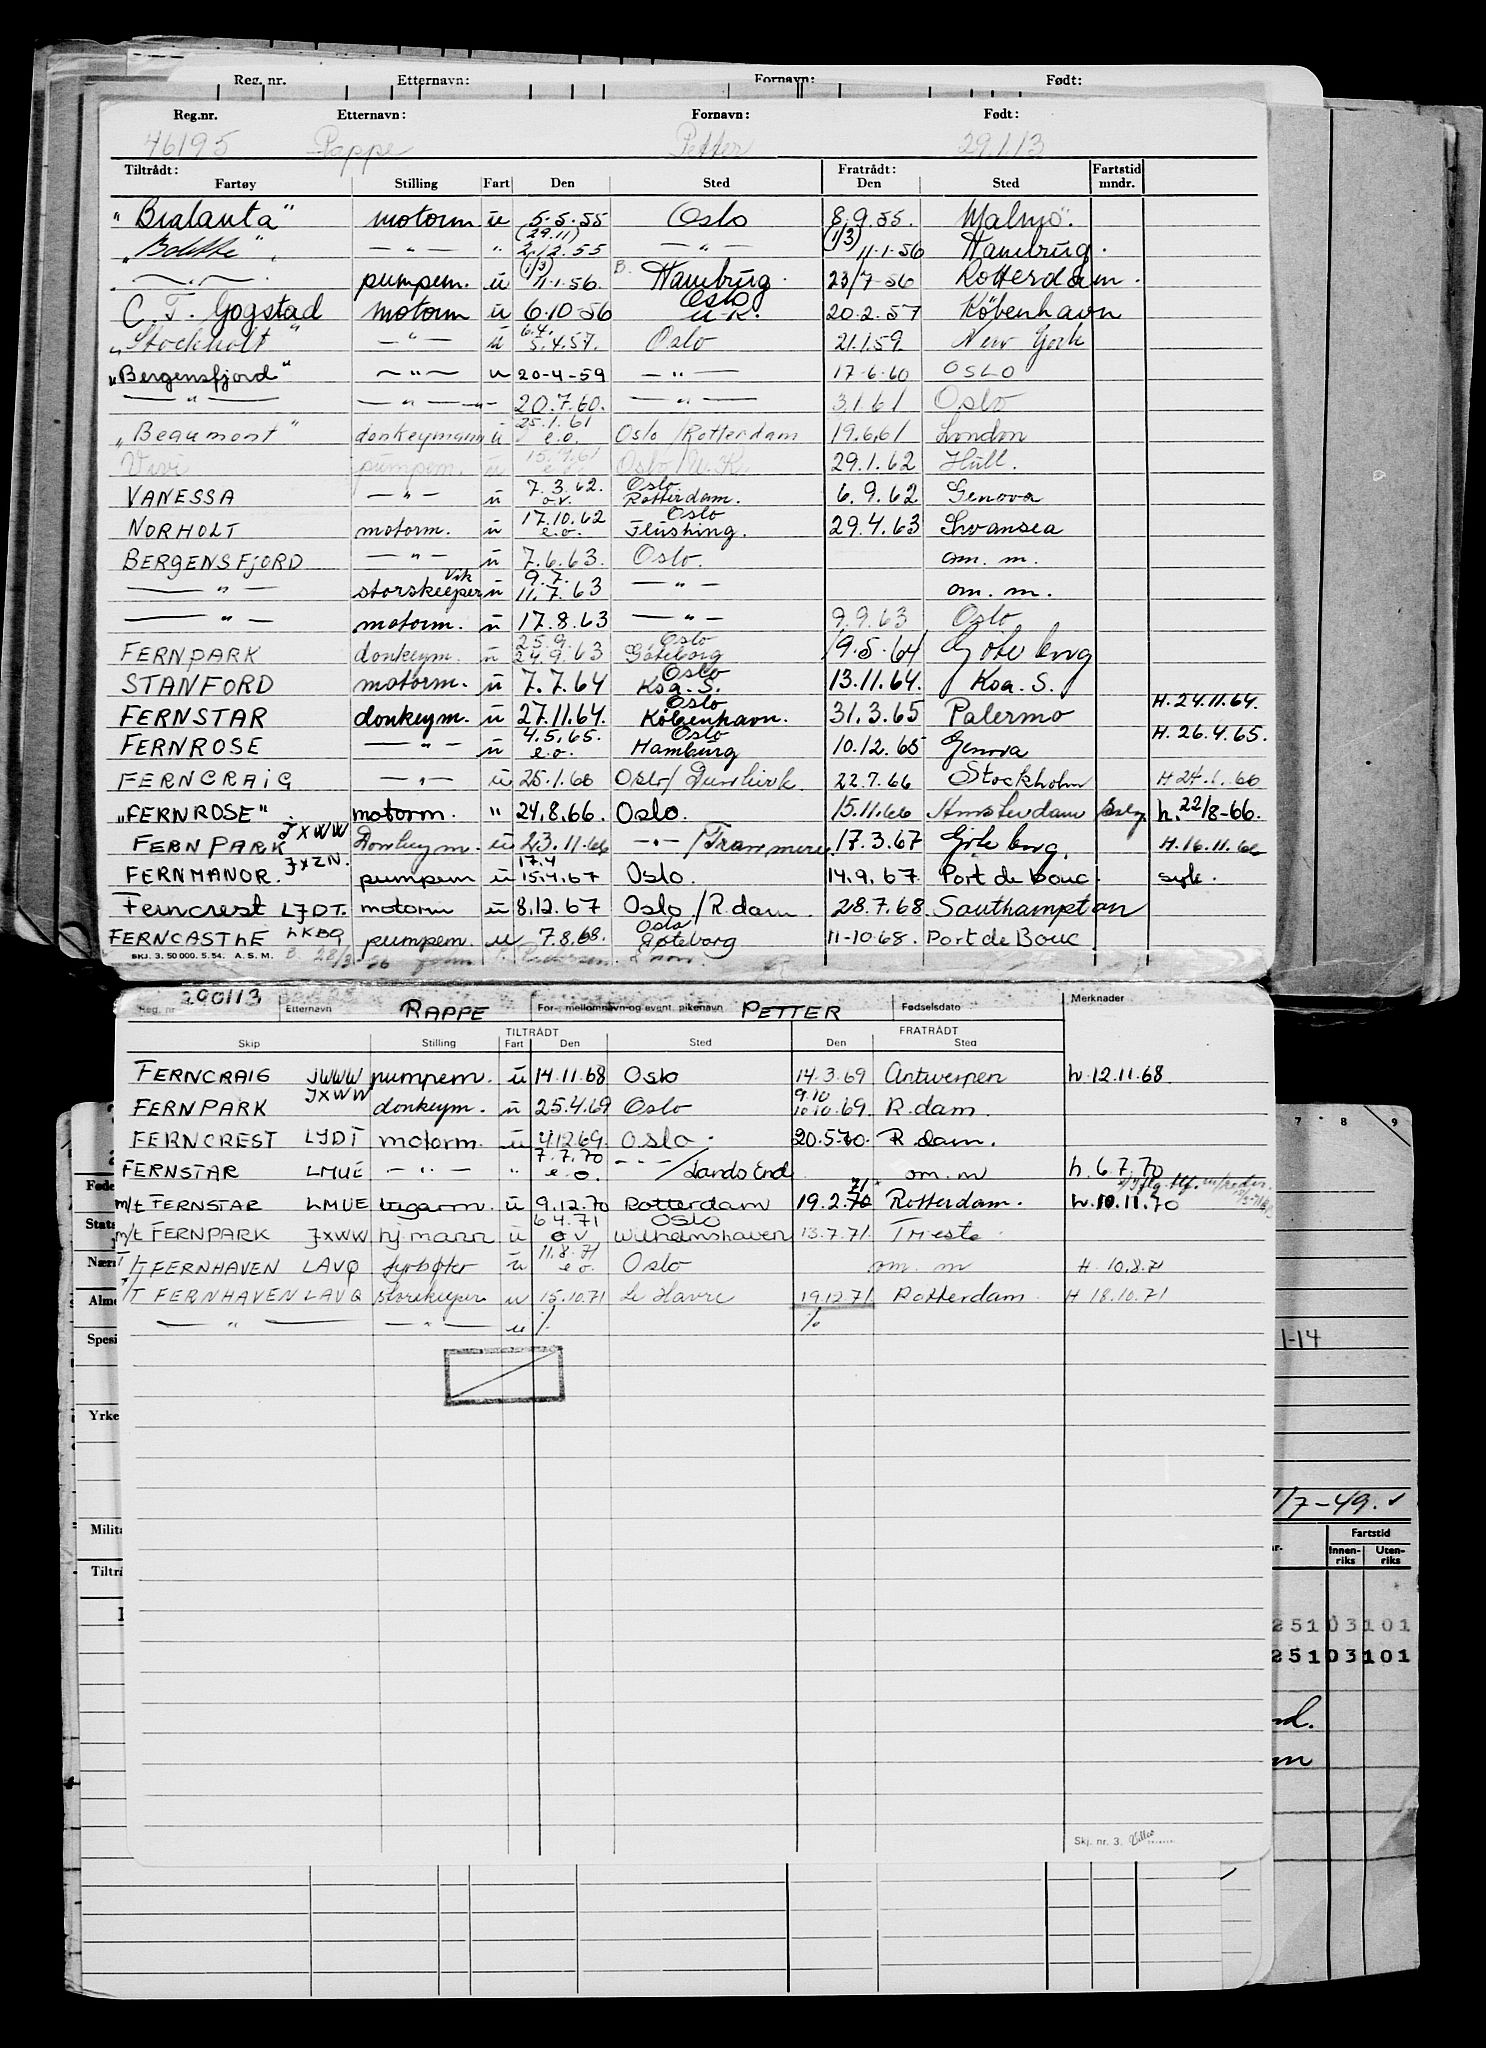 Reg. nr. Etternavn: Fornavn: Født:
Reg.nr. Etternavn: Fornavn: Født:
46195 Rappe Petter 29.1.13
Tiltrådt: Fratrådt: Fartstid
Fartøy Stilling Fart Den Sted Den Sted mndr.
"Bralanta" motorm u 5.5.55 Oslo 8.9.55. Malmö.
(29.11) (1/3)
— " — " 2.12.55 — " — 11.1.56 Hamburg.
(1/3)
— " — pumpem. u 11.1.56. B. Hamburg. 23/7-56 Rotterdam.
Oslo
C. T. Gogstad motorm u 6.10-56 U.K. 20.2.57 København
6.4.
"Stockholt" — " — u 5.4.57. Oslo 21.1.59. New York
"Bergensfjord" — " — u 20-4-59 — " — 17-6-60 OSLO
— " — — " — " — 20.7.60. — " — 3.1.61 Oslo
25.1.61
"Beaumont" donkeymann u e.o. Oslo/Rotterdam 19.6.61 London
15.9.61
Vivi pumpem. u e.o. Oslo/U.K. 29.1.62 Hull.
7.3.62. Oslo
VANESSA — " — u o.v. Rotterdam. 6.9.62 Genova
17.10.62 Oslo
NORHOLT motorm. u e.o. Flushing. 29.4.63 Swansea
BERGENSFJORD — " — u 7.6.63. Oslo. om. m.
vik 9.7.
— " — storskeeper u 11.7.63 — " — om. m.
— " — motorm. u 17.8.63 — " — 9.9.63 Oslo
25.9. Oslo
FERNPARK donkeym. u 24.9.63 Göteborg 19.5.64 Göteborg
Oslo
STANFORD motorm. u 7.7.64 Koa.S. 13.11.64. Koa.S.
Oslo H. 24.11.64.
FERNSTAR donkeym. u 27.11.64. København. 31.3.65 Palermo
4.5.65. Oslo H. 26.4.65.
FERNROSE — " — u e.o. Hamburg 10.12.65 Genova
FERNCRAIG — " — u 25.1.66 Oslo/Dunkirk 22.7.66 Stockholm H 24.1.66
"FERNROSE". motorm. " 24.8.66. Oslo. 15.11.66 Amsterdam h. 22/8-66.
FERNPARK JXWW Donkeym. u 23.11.66 — " — /Tranmere. 17.3.67 Göteborg. H.16.11.66
17.4
FERNMANOR. JXZN. pumpem u 15.4.67 Oslo. 14.9.67. Port de bouc. syk.
Ferncrest LJDT. motorm u 8.12.67 Oslo/R.dam 28.7.68 Southampton
Oslo
FERNCASTLE LKBG pumpem. u 7.8.68. Gøteborg 11-10.68. Port de Bouc
SKJ. 3. 50 000. 5.54. A.S.M. B. 28/3
290113
Reg. nr Etternavn RAPPE For-, mellomnavn og event. pikenavn PETTER Fødselsdato Merknader
TILTRÅDT FRATRÅDT
Skip Stilling Fart Den Sted Den Sted
FERNCRAIG JWWW pumpem. u 14.11.68 Oslo 14.3.69 Antwerpen h.12.11.68.
JXWW 9.10
FERNPARK donkeym. u 25.4.69 Oslo 10.10.69. R.dam.
FERNCREST LJDT motorm. u 4.12.69. Oslo. 20.5.70. R.dam.
7.7.70
FERNSTAR LMUE — " — " e.o. — " — /Lands End om. m h. 6.7.70
71
m/t FERNSTAR LMUE u 9.12.70 Rotterdam 19.2.70 Rotterdam. h.10.11.70
6.4.71 OSLO
m/t FERNPARK JXWW hj.mann u o v Wilhelmshaven 13.7.71. Trieste
11.8.71
T/T FERNHAVEN LAVQ fyrbøter u e.o. Oslo om. m H. 10.8.71
T/T FERNHAVEN LAVQ storekeeper u 15.10.71 Le Havre 19.12.71 Rotterdam. H 18.10.71
— " — — " — u % %
Skj. nr. 3.
7 8 9
Føde
Stats
Nærm
Alme
Spesi
1-14
Yrke
/7-49.
Milita
Fartstid
Innen- Uten-
riks riks
Tiltrå
25103101
25103101